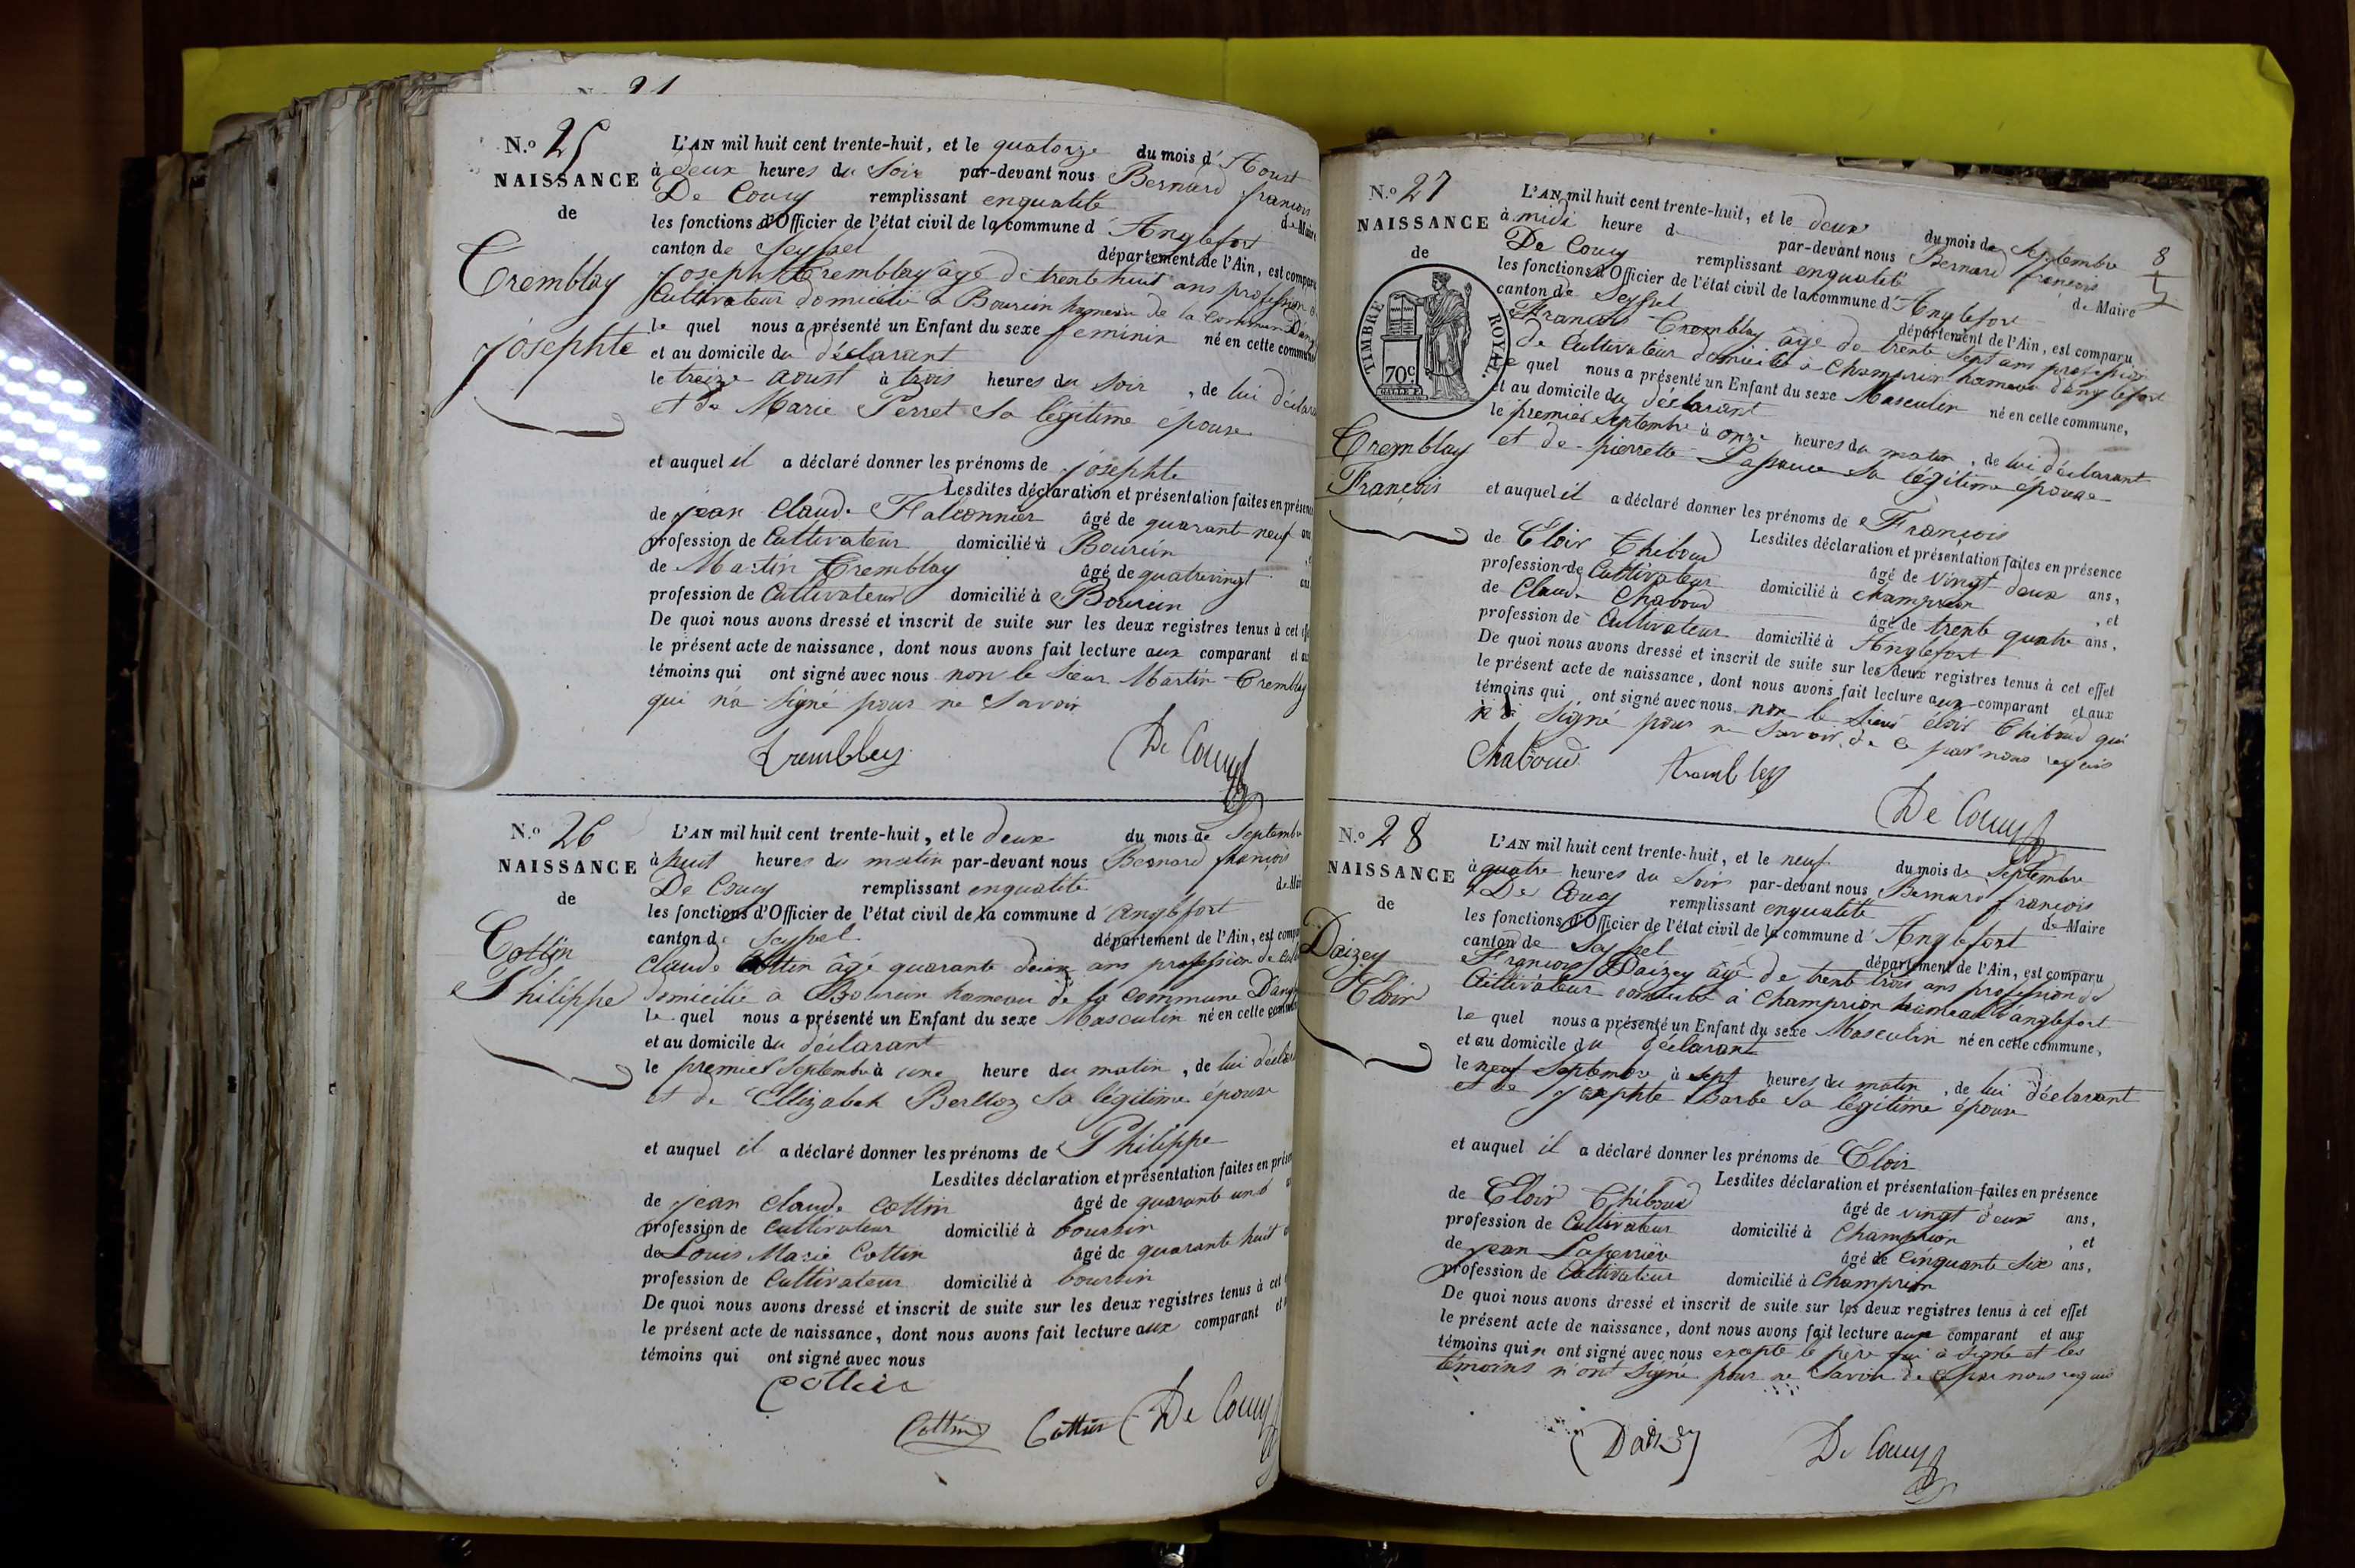 N.o 21
N.o 25
NAISSANCE
de
Tremblay
josephte
L'AN mil huit cent trente-huit, et le quatorze du mois d'Aoust
à deux heures du Soir par-devant nous Bernard françois
De Coucy remplissant enqualité de Maire
les fonctions d'Officier de l'état civil de la commune d'Anglefort
canton de Seyssel département de l'Ain, est comparu
joseph Tremblay âgé de trente huit ans profession de
Cultivateur domicilié à Boursin hameau de la Commune
le quel nous a présenté un Enfant du sexe feminin né en cette commune
et au domicile du déclarant
le treize aoust à trois heures du soir, de lui déclarant
et de Marie Perret sa légitime épouse
et auquel il a déclaré donner les prénoms de josephte
Lesdites déclaration et présentation faites en présence
de jean Claude Falconnier âgé de quarante neuf ans
profession de Cultivateur domicilié à Boursin
de Martin Tremblay âgé de quatrevingt
profession de Cultivateur domicilié à Boursin
De quoi nous avons dressé et inscrit de suite sur les deux registres tenus à cet effet
le présent acte de naissance, dont nous avons fait lecture aux comparant et aux
témoins qui ont signé avec nous non le Sieur Martin Tremblay
qui n'a signé pour ne savoir
Trembley De Coucy
N.o 26
NAISSANCE
de
Cottin
Philippe
L'AN mil huit cent trente-huit, et le deux du mois de Septembre
à huit heures du matin par-devant nous Bernard françois
De Coucy remplissant enqualité de Maire
les fonctions d'Officier de l'état civil de la commune d'anglefort
canton de Seyssel département de l'Ain, est comparu
Claude Cottin âgé quarante deux ans profession de
domicilié à Boursin hameau de la commune
le quel nous a présenté un Enfant du sexe Masculin né en cette commune
et au domicile du déclarant
le premier Septembre à une heure du matin, de lui déclarant
et de Ellizabeth Berlioz sa légitime épouse
et auquel il a déclaré donner les prénoms de Philippe
Lesdites déclaration et présentation faites en présence
de jean Claude Cottin âgé de quarante un
profession de Cultivateur domicilié à boursin
de Louis Marie Cottin âgé de quarante huit
profession de Cultivateur domicilié à boursin
De quoi nous avons dressé et inscrit de suite sur les deux registres tenus à cet
le présent acte de naissance, dont nous avons fait lecture aux comparant et
témoins qui ont signé avec nous
Cottin
Cottin Cottin De Coucy
8
N.o 27
NAISSANCE
de
TIMBRE ROYAL
70c
Tremblay
François
L'AN mil huit cent trente-huit, et le deux du mois de Septembre
à midi heure d par-devant nous Bernard françois
De Coucy remplissant enqualité de Maire
les fonctions d'Officier de l'état civil de la commune d'Anglefort
canton de Seyssel département de l'Ain, est comparu
François Tremblay âgé de trente Sept ans profession
de Cultivateur domicilié à Champrion hameau d'anglefort
le quel nous a présenté un Enfant du sexe Masculin né en cette commune,
et au domicile du déclarant
le premier Septembre à onze heures du matin, de lui déclarant
et de pierrette sa légitime épouse
et auquel il a déclaré donner les prénoms de François
Lesdites déclaration et présentation faites en présence
de Eloir Thiboud âgé de vingt deux ans,
profession de Cultivateur domicilié à Champrion, et
de Claude Chaboud âgé de trente quatre ans.
profession de Cultivateur domicilié à Anglefort
De quoi nous avons dressé et inscrit de suite sur les deux registres tenus à cet effet
le présent acte de naissance, dont nous avons fait lecture aux comparant et aux
témoins qui ont signé avec nous non le Sieur éloir Thiboud qui
n'a signé pour ne Savoir, de ce par nous requis
Chaboud Trembley
De Coucy
N.o 28
NAISSANCE
de
Daizey
Eloir
L'AN mil huit cent trente-huit, et le neuf du mois de Septembre
à quatre heures du Soir par-devant nous Bernard françois
De Coucy remplissant enqualité de Maire
les fonctions d'Officier de l'état civil de la commune d'Anglefort
canton de Seyssel département de l'Ain, est comparu
François Daizey âgé de trente trois ans profession de
Cultivateur domicilié à Champrion hameau d'anglefort
le quel nous a présenté un Enfant du sexe Masculin né en cette commune,
et au domicile du déclarant
le neuf Septembre à sept heures du matin, de lui déclarant
et de josephte Barbe sa légitime épouse
et auquel il a déclaré donner les prénoms de Eloir
Lesdites déclaration et présentation faites en présence
de Eloir Thiboud âgé de vingt deux ans,
profession de Cultivateur domicilié à Champrion, et
de jean Laperrière âgé de Cinquante Six ans,
profession de Cultivateur domicilié à Champrion
De quoi nous avons dressé et inscrit de suite sur les deux registres tenus à cet effet
le présent acte de naissance, dont nous avons fait lecture aux comparant et aux
témoins qui n ont signé avec nous excepté le père qui à signé et les
témoins n'ont signé pour ne Savoir de ce par nous requis
Daizey De Coucy